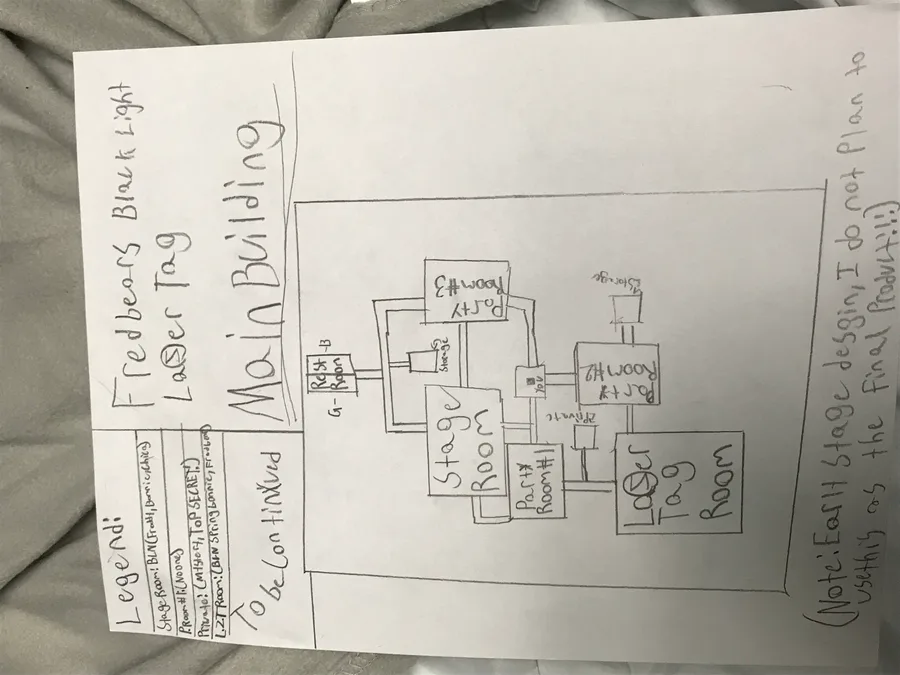 Legend:
Stage Room: BLN (Freddy, Bonnie, Chica)
P.Room#1: (Noone)
Private: (Mystery, ToP SECRET.)
L.ZT Room: (BLN SpringBonnie, Fredbear)
To be Continued
Fredbears Black Light
LaSer Tag
Main Building
G- Rest Room -B
Storage
Party Room #3
Stage Room
You
Party Room #1
Private
Party Room #2
Storage
LaSer Tag Room
(Note: EarH Stage desgin, I do not Plan to
use this as the final Product!!!)